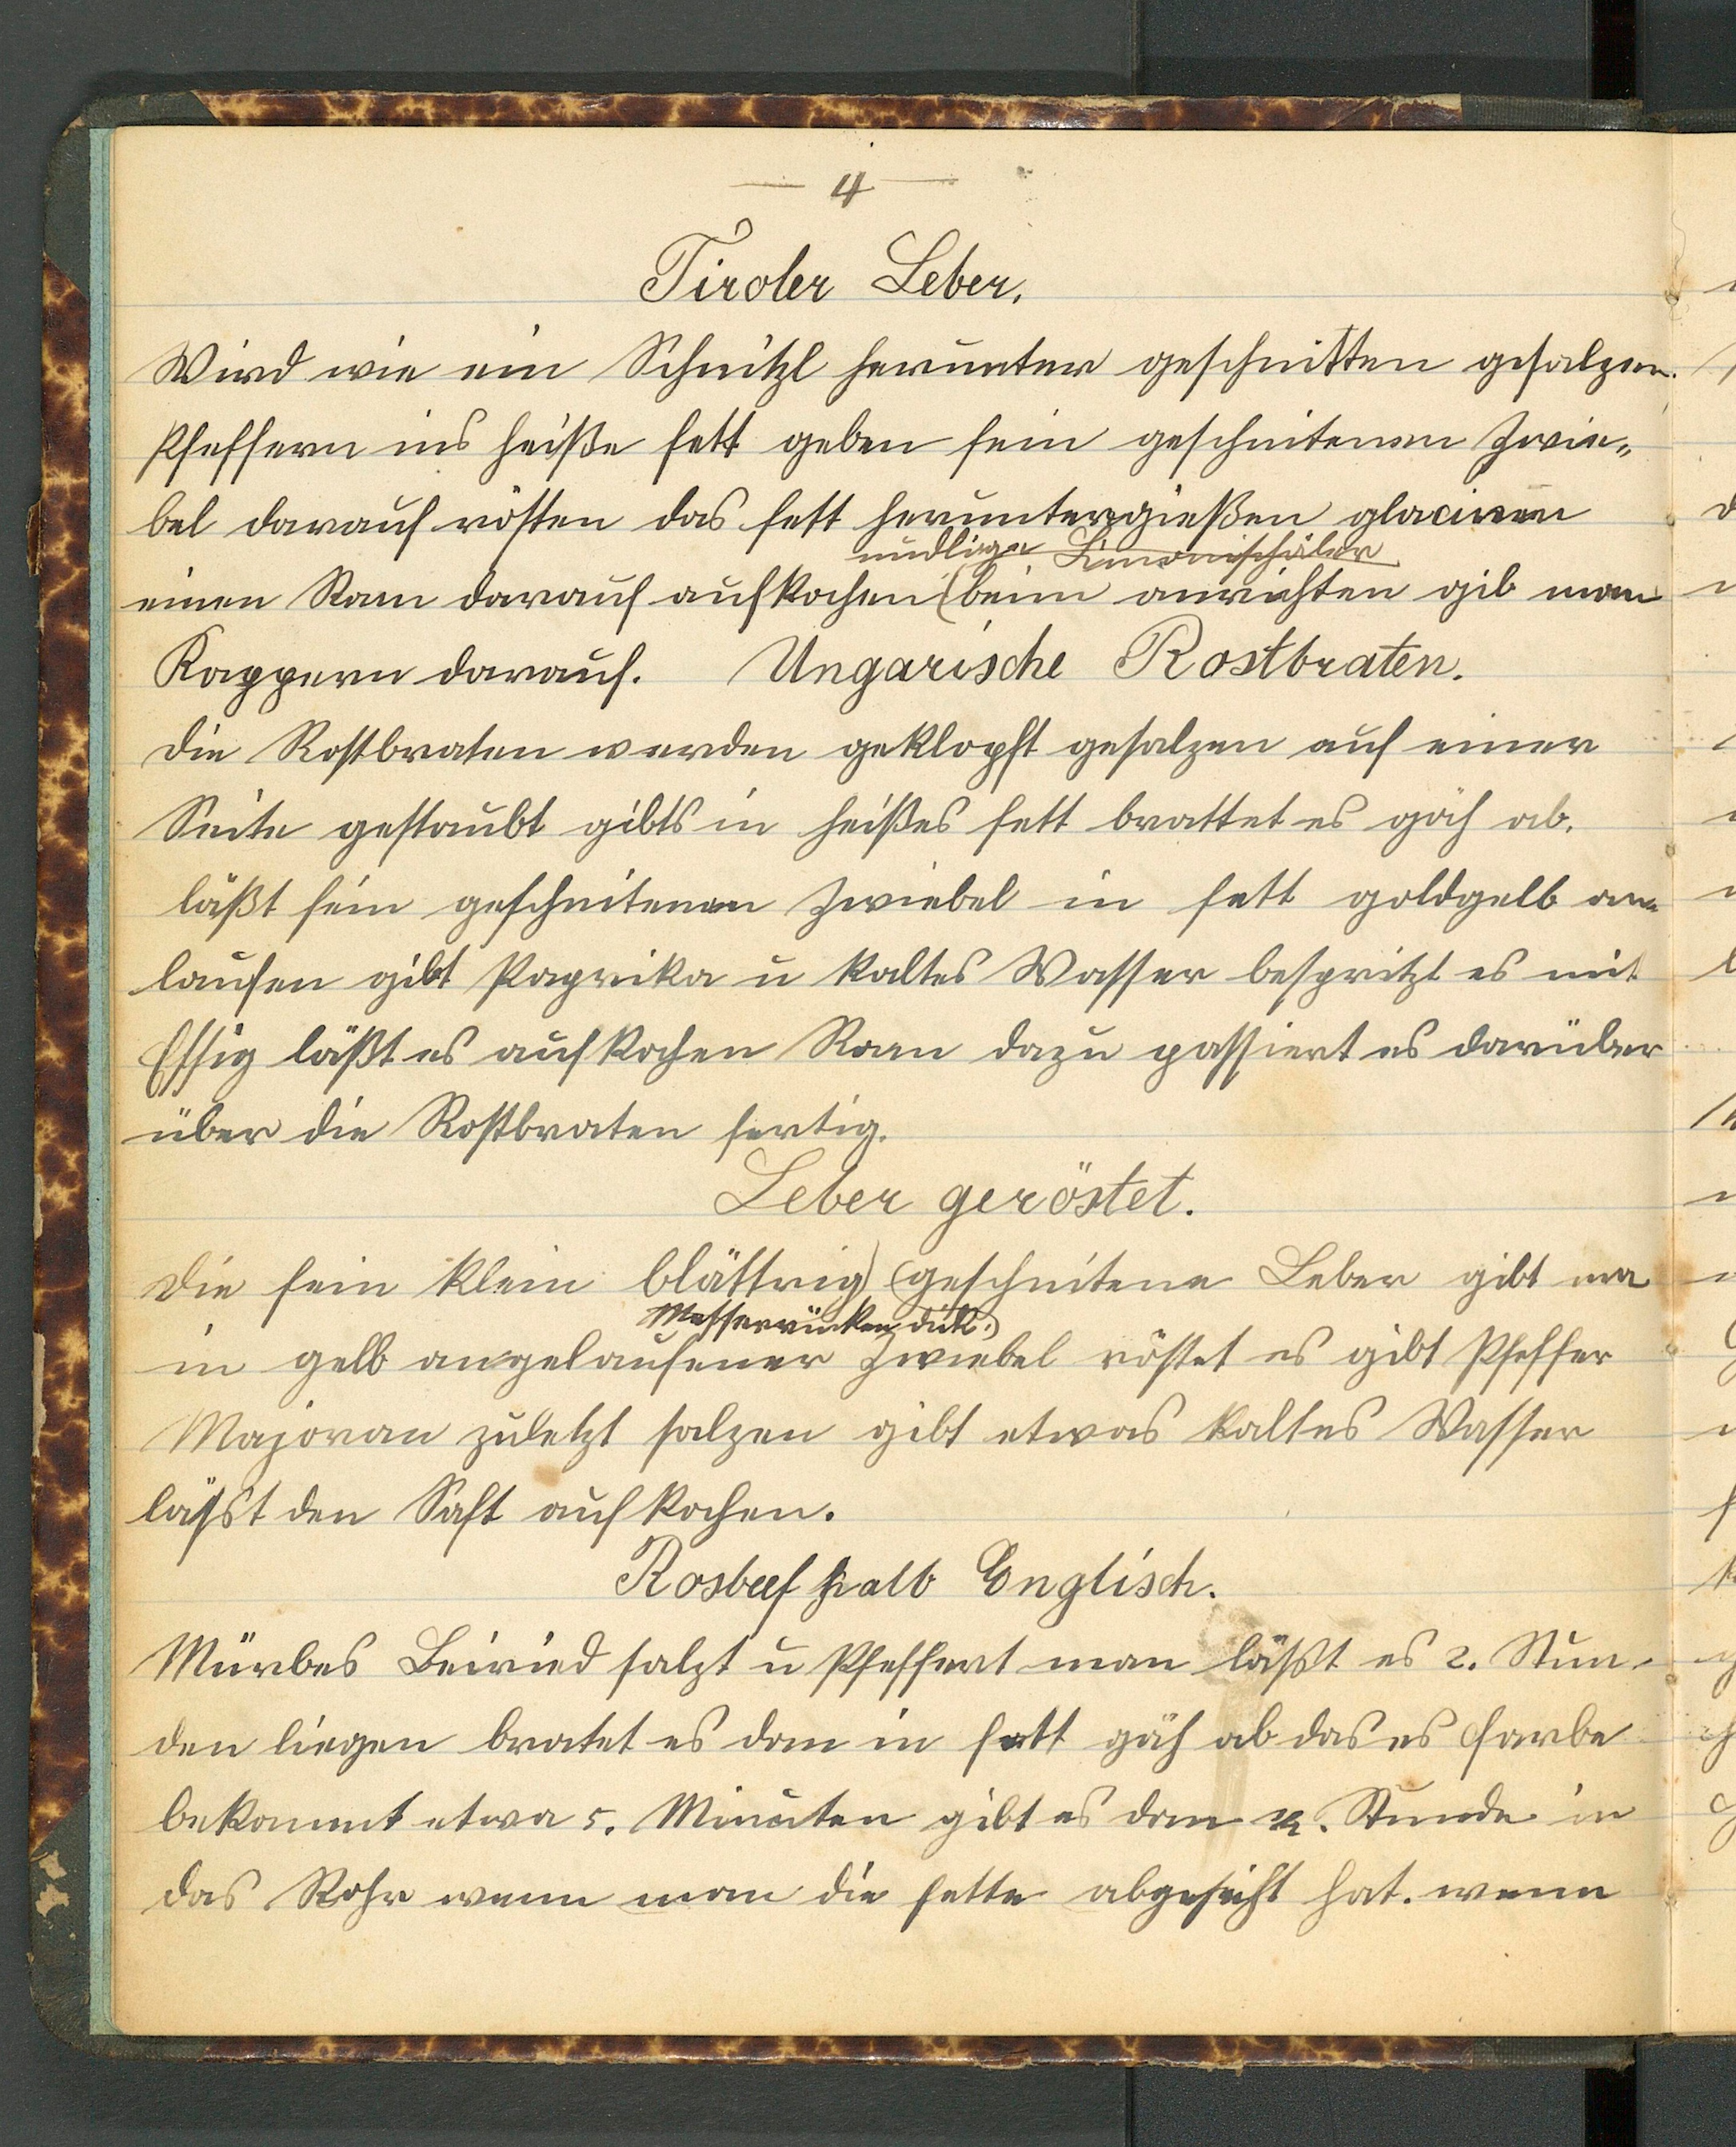 4
Tiroler Leber.
Wird wie ein Schnitzl herunter geschnitten gesalzen.
Pfeffern ins heiße fett geben fein geschnitenen Zwie„
bel darauf rösten das fett heruntergießen glaciren
nudlige Limonischäler
einen Ram darauf aufkochen (beim anrichten gib man
Kappern darauf. Ungarische Rostbraten.
die Rostbraten werden geklopft gesalzen auf einer
Seite gestaubt gibts in heißes fett brattet es gäh ab.
läßt fein geschnitenen Zwiebel in fett goldgelb an„
laufen gibt Paprika u kaltes Wasser bespritzt es mit
Essig läßt es aufkochen Ram dazu passiert es darüber
über die Rostbraten fertig.
Leber geröstet.
Die fein klein blättrig) (geschnitene Leber gibt ma
Messerrücken dick.)
in gelb angelaufener Zwiebel röstet es gibt Pfeffer
Majoran zuletzt salzen gibt etwas kaltes Wasser
lässt den Saft aufkochen.
Rosbeef halb Englisch.
Mürbes Beiried salzt u Pfeffert man läßt es 2. Stun-
den liegen bratet es dan in fett gäh ab das es farbe
bekommt etwa 5. Minuten gibt es dan Stunde in
das Rohr wenn man die fette abgesiht hat. wenn